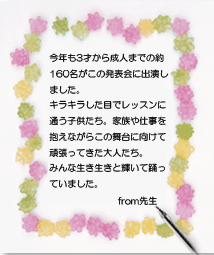 今年も3才から成人までの約
160名がこの発表会に出演し
ました。
キラキラした目でレッスンに
通う子供たち。家族や仕事を
抱えながらこの舞台に向けて
頑張ってきた大人たち。
みんな生き生きと輝いて踊っ
ていました。
from先生